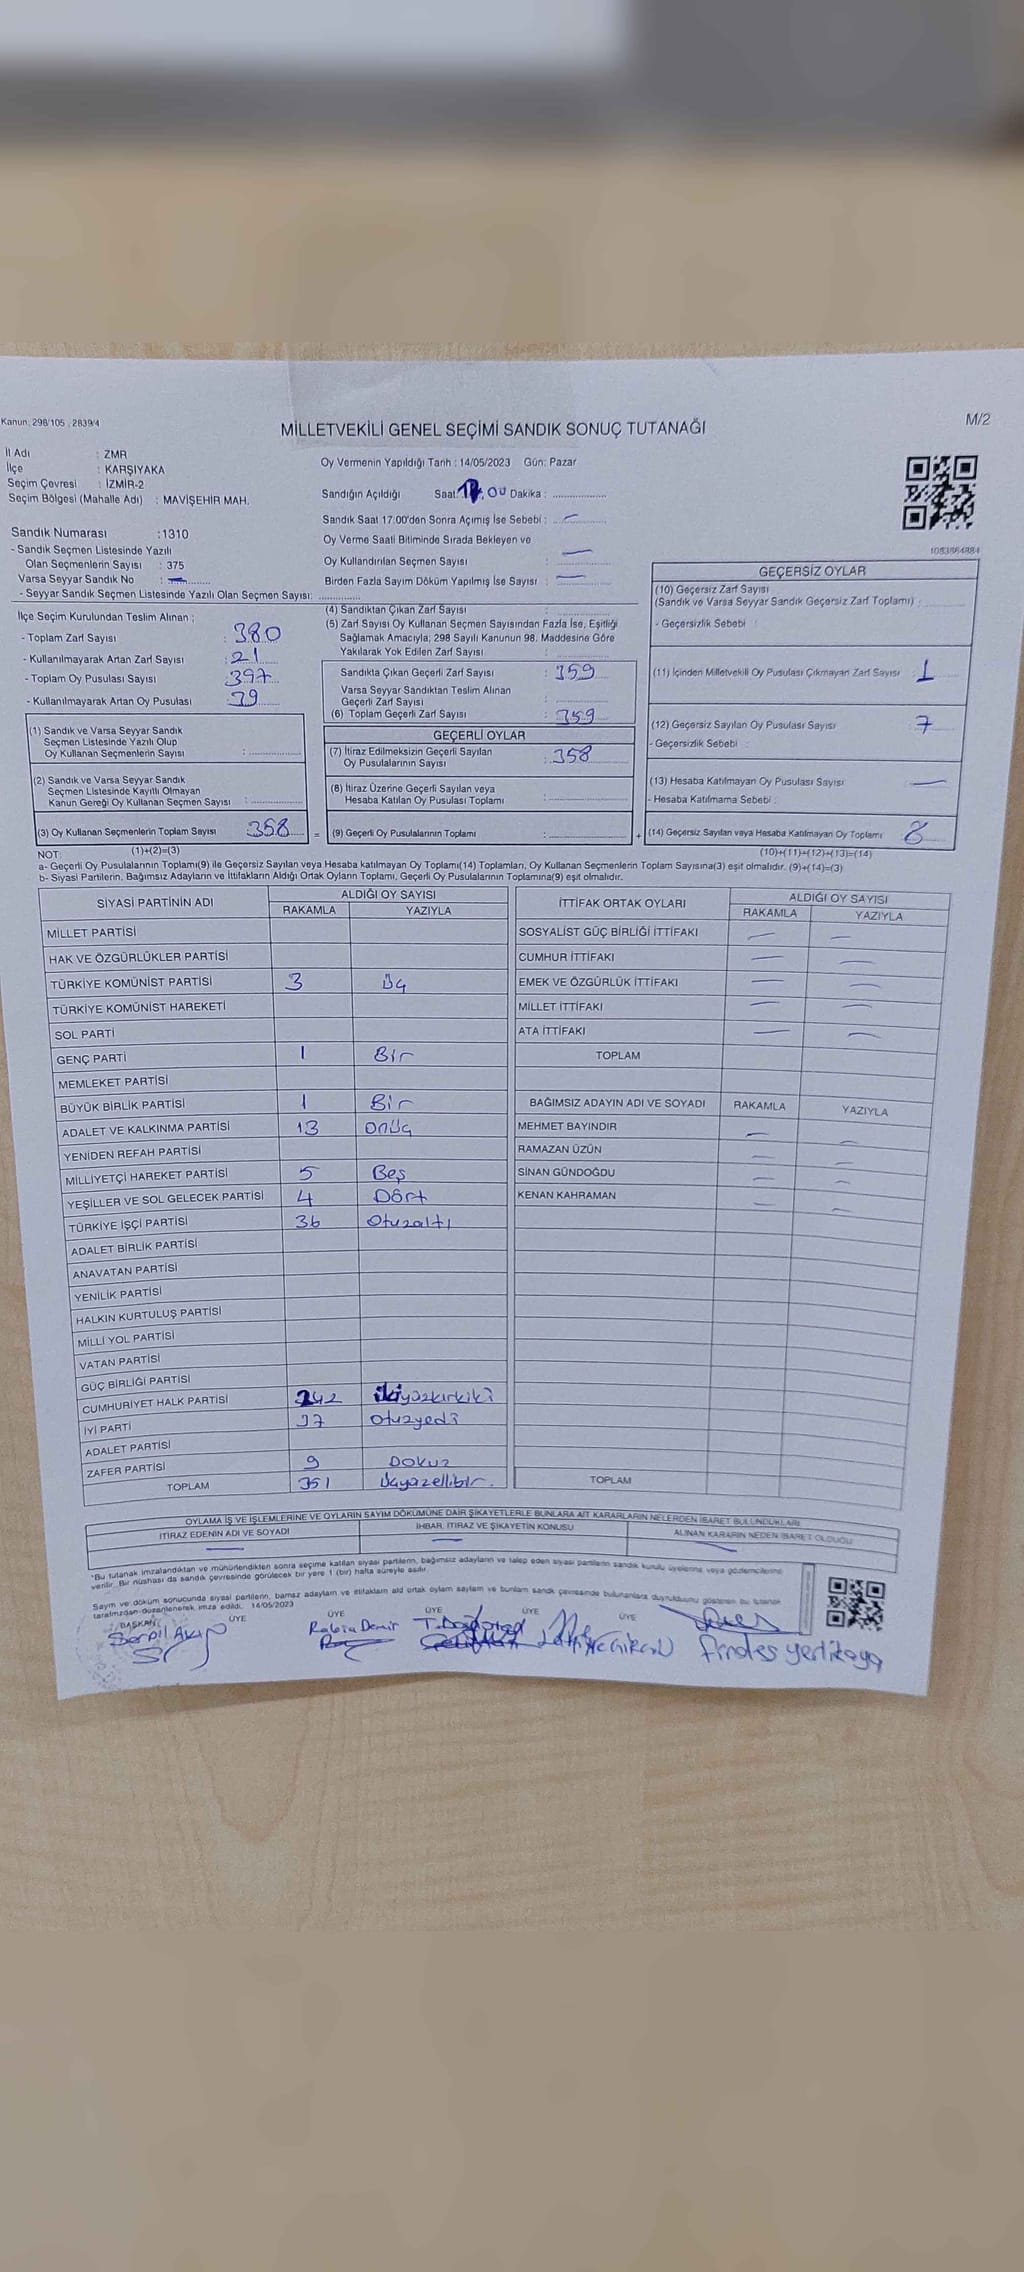 Kanun: 298/105 , 2839/4
M/2
MİLLETVEKİLİ GENEL SEÇİMİ SANDIK SONUÇ TUTANAĞI
İl Adı : ZMR
İlçe : KARŞIYAKA
Seçim Çevresi : İZMİR-2
Seçim Bölgesi (Mahalle Adı) : MAVİŞEHİR MAH.
Sandık Numarası :1310
- Sandık Seçmen Listesinde Yazılı
Olan Seçmenlerin Sayısı : 375
Varsa Seyyar Sandık No : —
- Seyyar Sandık Seçmen Listesinde Yazılı Olan Seçmen Sayısı:
Oy Vermenin Yapıldığı Tarih : 14/05/2023 Gün: Pazar
Sandığın Açıldığı Saat: 17,00 Dakika :
Sandık Saat 17:00'den Sonra Açılmış İse Sebebi : —
Oy Verme Saati Bitiminde Sırada Bekleyen ve
Oy Kullandırılan Seçmen Sayısı : —
Birden Fazla Sayım Döküm Yapılmış İse Sayısı : —
1083864884
İlçe Seçim Kurulundan Teslim Alınan ;
- Toplam Zarf Sayısı : 380
- Kullanılmayarak Artan Zarf Sayısı : 21
- Toplam Oy Pusulası Sayısı : 397
- Kullanılmayarak Artan Oy Pusulası : 39
(1) Sandık ve Varsa Seyyar Sandık
Seçmen Listesinde Yazılı Olup
Oy Kullanan Seçmenlerin Sayısı :
(2) Sandık ve Varsa Seyyar Sandık
Seçmen Listesinde Kayıtlı Olmayan
Kanun Gereği Oy Kullanan Seçmen Sayısı :
(3) Oy Kullanan Seçmenlerin Toplam Sayısı 358
(4) Sandıktan Çıkan Zarf Sayısı :
(5) Zarf Sayısı Oy Kullanan Seçmen Sayısından Fazla İse, Eşitliği
Sağlamak Amacıyla; 298 Sayılı Kanunun 98. Maddesine Göre
Yakılarak Yok Edilen Zarf Sayısı :
Sandıkta Çıkan Geçerli Zarf Sayısı : 359
Varsa Seyyar Sandıktan Teslim Alınan
Geçerli Zarf Sayısı :
(6) Toplam Geçerli Zarf Sayısı : 359
GEÇERLİ OYLAR
(7) İtiraz Edilmeksizin Geçerli Sayılan
Oy Pusulalarının Sayısı : 358
(8) İtiraz Üzerine Geçerli Sayılan veya
Hesaba Katılan Oy Pusulası Toplamı :
= (9) Geçerli Oy Pusulalarının Toplamı :
GEÇERSİZ OYLAR
(10) Geçersiz Zarf Sayısı
(Sandık ve Varsa Seyyar Sandık Geçersiz Zarf Toplamı) :
- Geçersizlik Sebebi :
(11) İçinden Milletvekili Oy Pusulası Çıkmayan Zarf Sayısı : 1
(12) Geçersiz Sayılan Oy Pusulası Sayısı : 7
- Geçersizlik Sebebi :
(13) Hesaba Katılmayan Oy Pusulası Sayısı : —
- Hesaba Katılmama Sebebi :
+ (14) Geçersiz Sayılan veya Hesaba Katılmayan Oy Toplamı : 8
NOT: (1)+(2)=(3)
(10)+(11)+(12)+(13)=(14)
a- Geçerli Oy Pusulalarının Toplamı(9) ile Geçersiz Sayılan veya Hesaba katılmayan Oy Toplamı(14) Toplamları, Oy Kullanan Seçmenlerin Toplam Sayısına(3) eşit olmalıdır. (9)+(14)=(3)
b- Siyasi Partilerin, Bağımsız Adayların ve İttifakların Aldığı Ortak Oyların Toplamı, Geçerli Oy Pusulalarının Toplamına(9) eşit olmalıdır.
SİYASİ PARTİNİN ADI ALDIĞI OY SAYISI
RAKAMLA YAZIYLA
MİLLET PARTİSİ
HAK VE ÖZGÜRLÜKLER PARTİSİ
TÜRKİYE KOMÜNİST PARTİSİ 3 Üç
TÜRKİYE KOMÜNİST HAREKETİ
SOL PARTİ
GENÇ PARTİ 1 Bir
MEMLEKET PARTİSİ
BÜYÜK BİRLİK PARTİSİ 1 Bir
ADALET VE KALKINMA PARTİSİ 13 onüç
YENİDEN REFAH PARTİSİ
MİLLİYETÇİ HAREKET PARTİSİ 5 Beş
YEŞİLLER VE SOL GELECEK PARTİSİ 4 Dört
TÜRKİYE İŞÇİ PARTİSİ 36 Otuzaltı
ADALET BİRLİK PARTİSİ
ANAVATAN PARTİSİ
YENİLİK PARTİSİ
HALKIN KURTULUŞ PARTİSİ
MİLLİ YOL PARTİSİ
VATAN PARTİSİ
GÜÇ BİRLİĞİ PARTİSİ
CUMHURİYET HALK PARTİSİ 242 ikiyüzkırkiki
İYİ PARTİ 37 otuzyedi
ADALET PARTİSİ
ZAFER PARTİSİ 9 Dokuz
TOPLAM 351 üçyüzellibir.
İTTİFAK ORTAK OYLARI ALDIĞI OY SAYISI
RAKAMLA YAZIYLA
SOSYALİST GÜÇ BİRLİĞİ İTTİFAKI — —
CUMHUR İTTİFAKI — —
EMEK VE ÖZGÜRLÜK İTTİFAKI — —
MİLLET İTTİFAKI — —
ATA İTTİFAKI — —
TOPLAM
BAĞIMSIZ ADAYIN ADI VE SOYADI RAKAMLA YAZIYLA
MEHMET BAYINDIR — —
RAMAZAN ÜZÜN — —
SİNAN GÜNDOĞDU — —
KENAN KAHRAMAN — —
TOPLAM
OYLAMA İŞ VE İŞLEMLERİNE VE OYLARIN SAYIM DÖKÜMÜNE DAİR ŞİKAYETLERLE BUNLARA AİT KARARLARIN NELERDEN İBARET BULUNDUKLARI
İTİRAZ EDENİN ADI VE SOYADI İHBAR, İTİRAZ VE ŞİKAYETİN KONUSU ALINAN KARARIN NEDEN İBARET OLDUĞU
— — —
"Bu tutanak imzalandıktan ve mühürlendikten sonra seçime katılan siyasi partilerin, bağımsız adayların ve talep eden siyasi partilerin sandık kurulu üyelerine veya gözlemcilerine
verilir. Bir nüshası da sandık çevresinde görülecek bir yere 1 (bir) hafta süreyle asılır.
Sayım ve döküm sonucunda siyasi partilerin,
tarafımızdan düzenlenerek imza edildi. 14/05/2023
BAŞKAN ÜYE ÜYE ÜYE ÜYE ÜYE
Serpil
Rabia Demir
yerlikaya